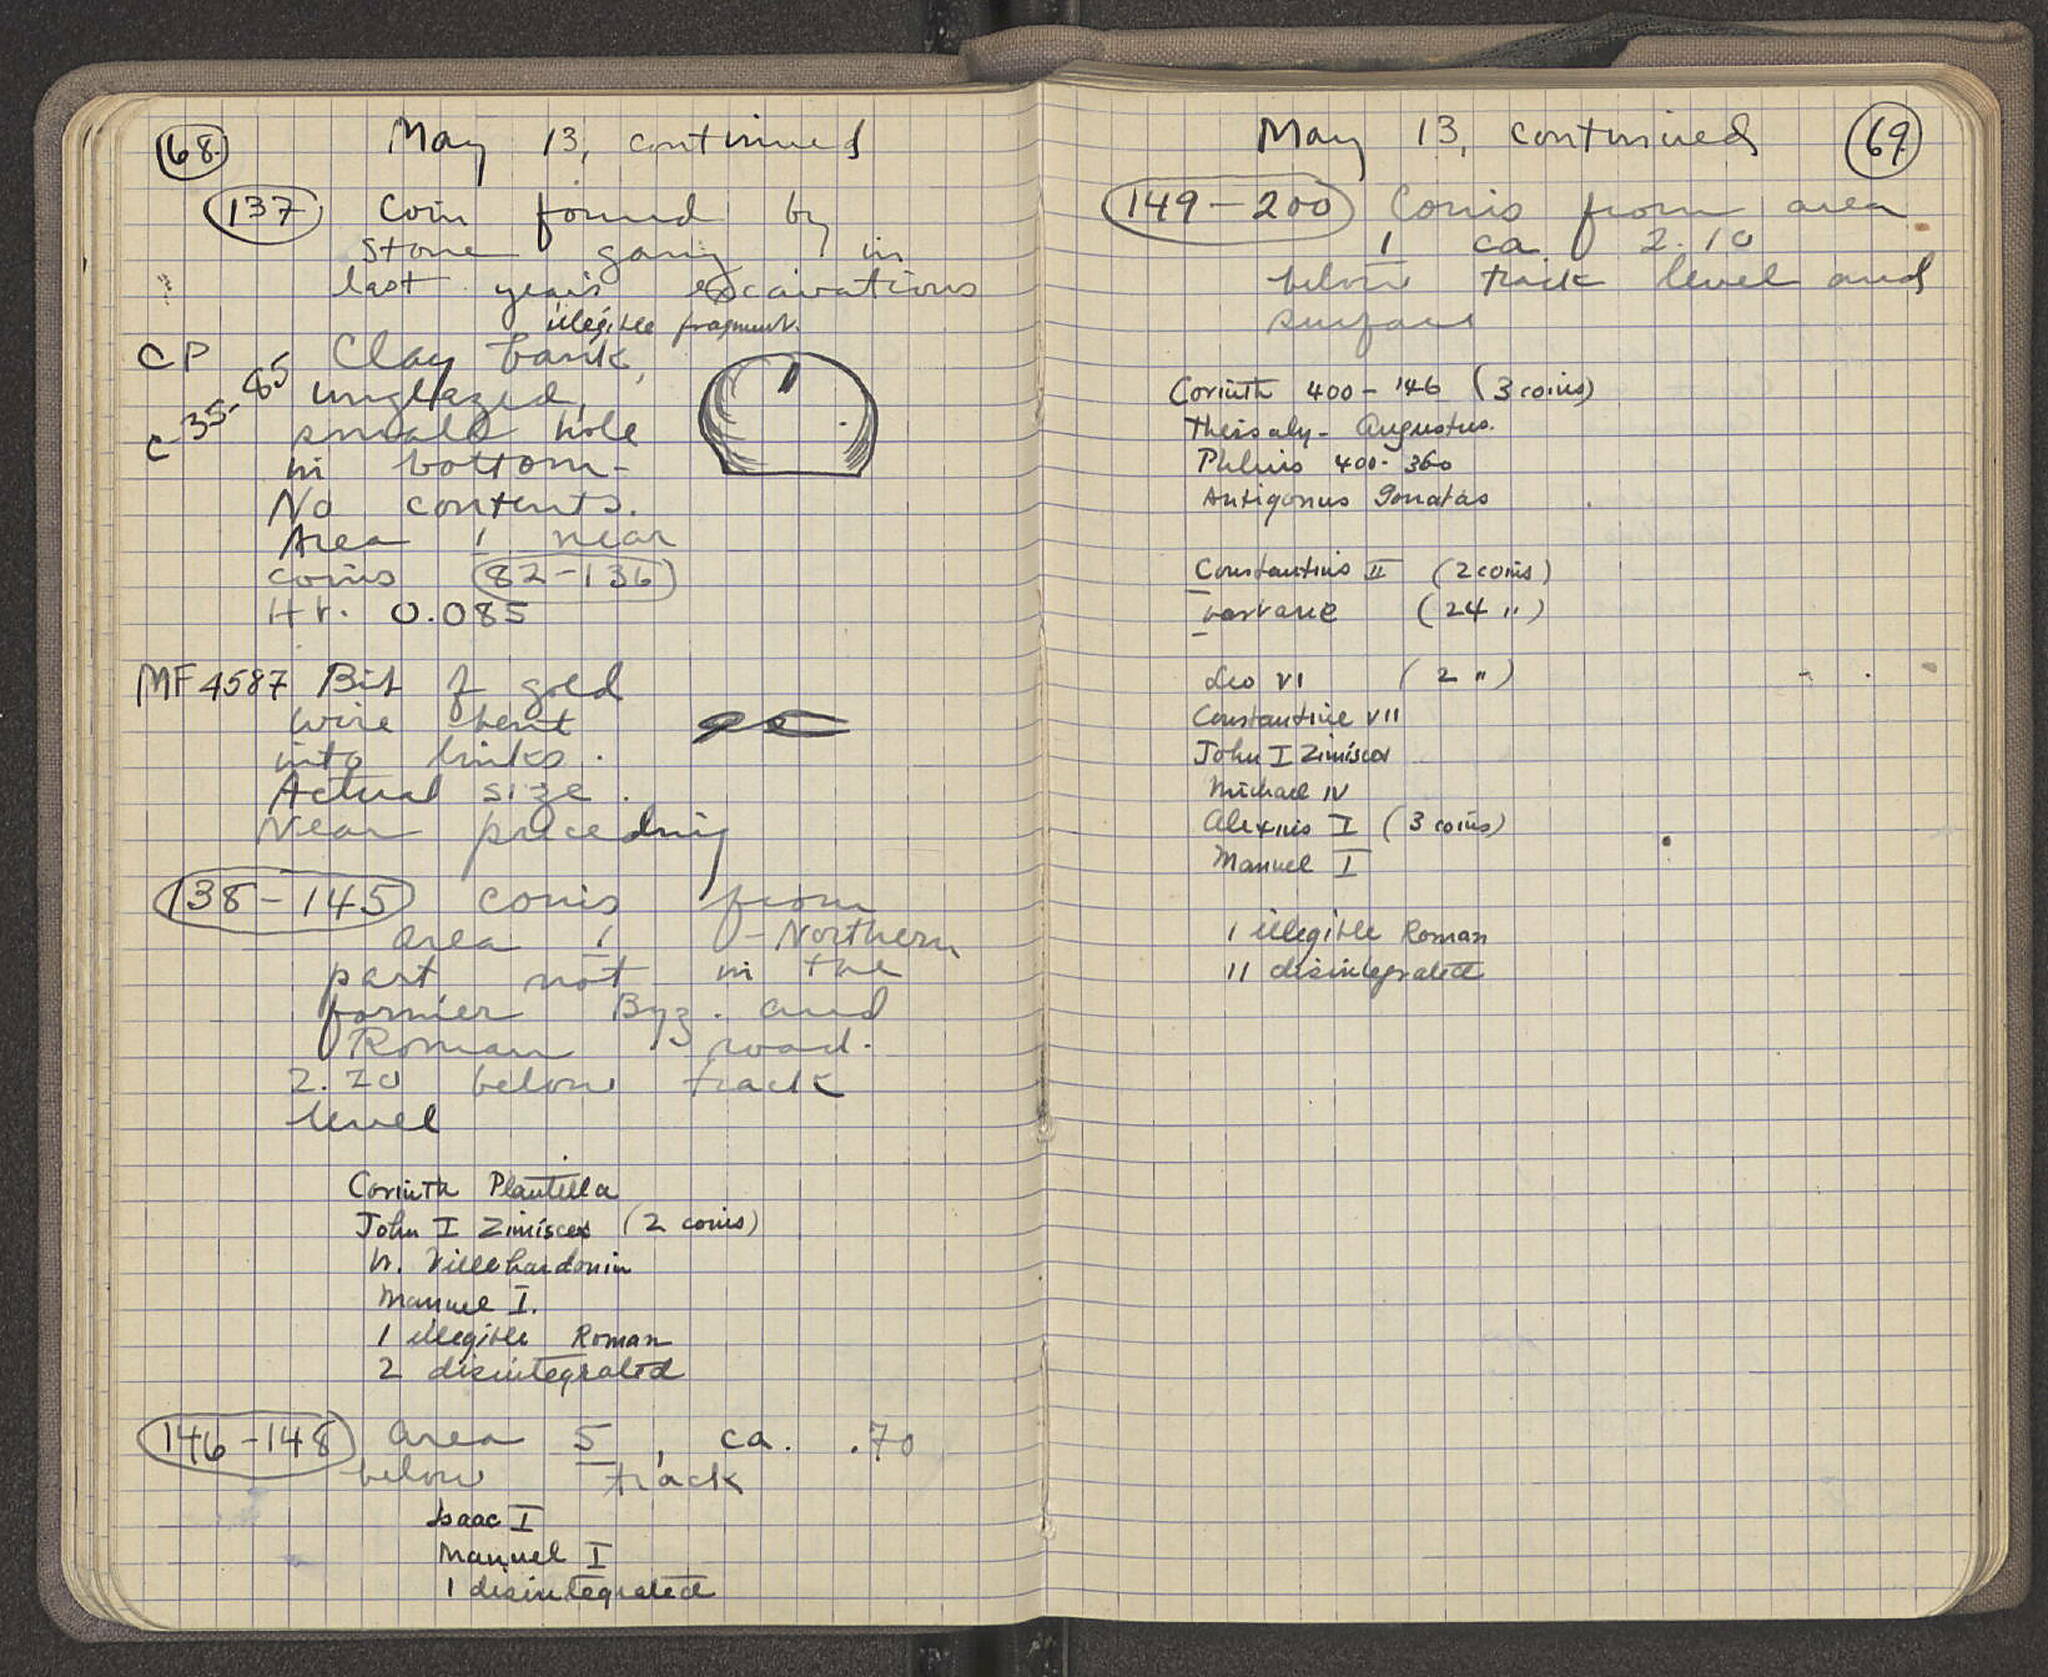 68. May 13, continued
137 Coin found by
stone gang in
last year's excavations
illegible fragment.
CP Clay bank,
C-35-85 unglazed,
small hole
in bottom -
No contents.
Area 1 near
coins 82-136
Ht. 0.085
MF 4587 Bit of gold
wire bent
into links.
Actual size.
Near preceding
138-145 coins from
area 1 - Northern
part, not in the
former Byz. and
Roman road.
2.20 below track
level
Corinth Plautilla
John I Zimisces (2 coins)
W. Villehardouin
Manuel I.
1 illegible Roman
2 disintegrated
146-148 Area 5, ca. .70
below track
Isaac I
Manuel I
1 disintegrated
May 13, continued 69.
149-200 Coins from area
1 ca 2.10
below track level and
surface
Corinth 400-146 (3 coins)
Thessaly - Augustus.
Phlius 400-360
Antigonus Gonatas
Constantius II (2 coins)
(24 ")
Leo VI (2 ")
Constantine VII
John I Zimisces
Michael IV
Alexius I (3 coins)
Manuel I
1 illegible Roman
11 disintegrated